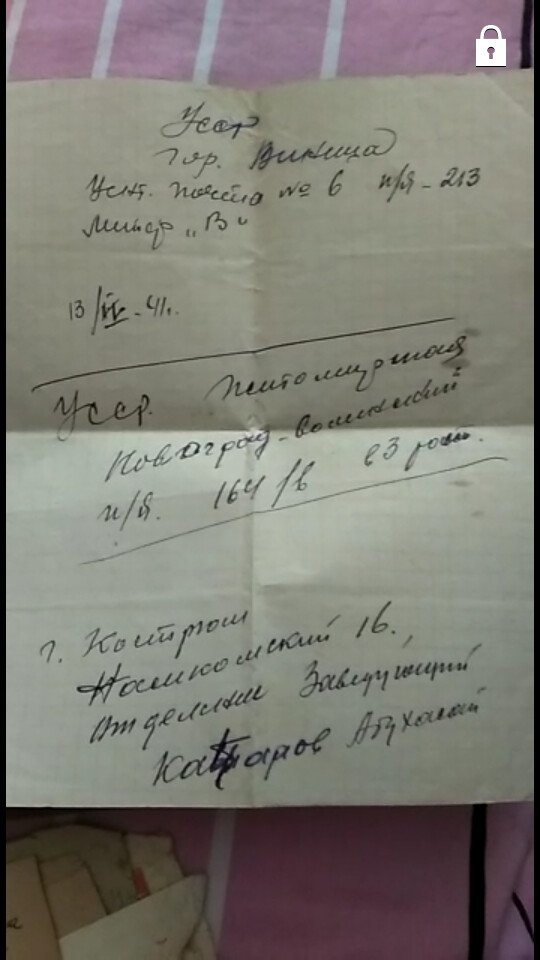 Усср
гор. Виница
Уст. почта № 6 п/я - 213
Литер „В"
13/IV - 41г.
Усср. Житомирская
Новоград-волинский
п/я. 164/в 23 рот.
г. Костром
16.
отделини Заведующий
Каттаров